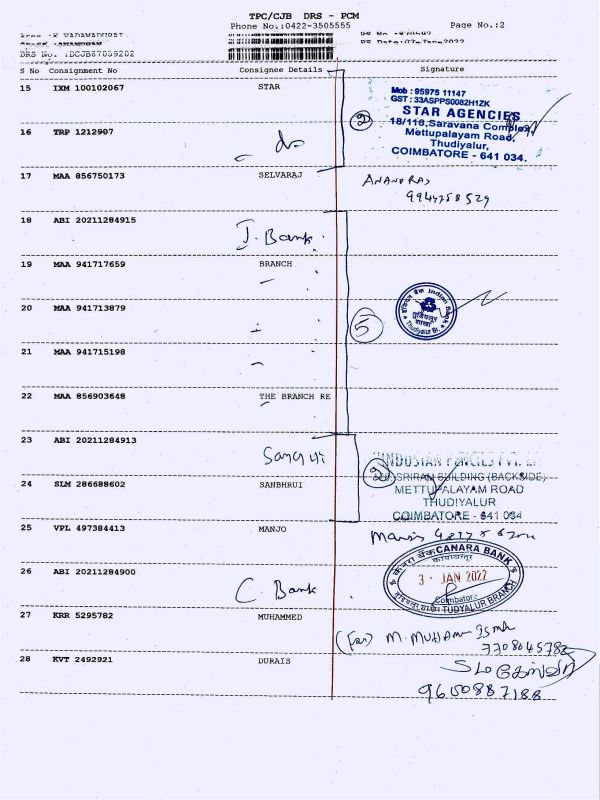 TPC/CJB DRS - PCM
Phone No.:0422-3505555 Page No.:2
DRS No. :DCJB87059202
S No Consignment No Consignee Details Signature
15 IXM 100102067 STAR
Mob : 95975 11147
GST : 33ASPPS0082H1ZK
STAR AGENCIES
18/116,Saravana Complex,
Mettupalayam Road,
Thudiyalur,
COIMBATORE - 641 034.
2
16 TRP 1212907 do
17 MAA 856750173 SELVARAJ ANANDRAJ
18 ABI 20211284915 I. Bank
19 MAA 941717659 BRANCH
20 MAA 941713879
5
Indian Bank
Thudiyalur Br.
21 MAA 941715198
22 MAA 856903648 THE BRANCH RE
23 ABI 20211284913
2
HINDUSTAN PENCILS PVT. LT
SRIRAM BUILDING (BACKSIDE)
METTUPALAYAM ROAD
THUDIYALUR
COIMBATORE - 641 034
24 SLM 286688602 SANBHRUI
25 VPL 497384413 MANJO
26 ABI 20211284900 C Bank
केनरा बैंक CANARA BANK
3 JAN 2022
Coimbatore
TUDIYALUR BRANCH
27 KRR 5295782 MUHAMMED
7708045782
28 KVT 2492921 DURAIS
9650887188